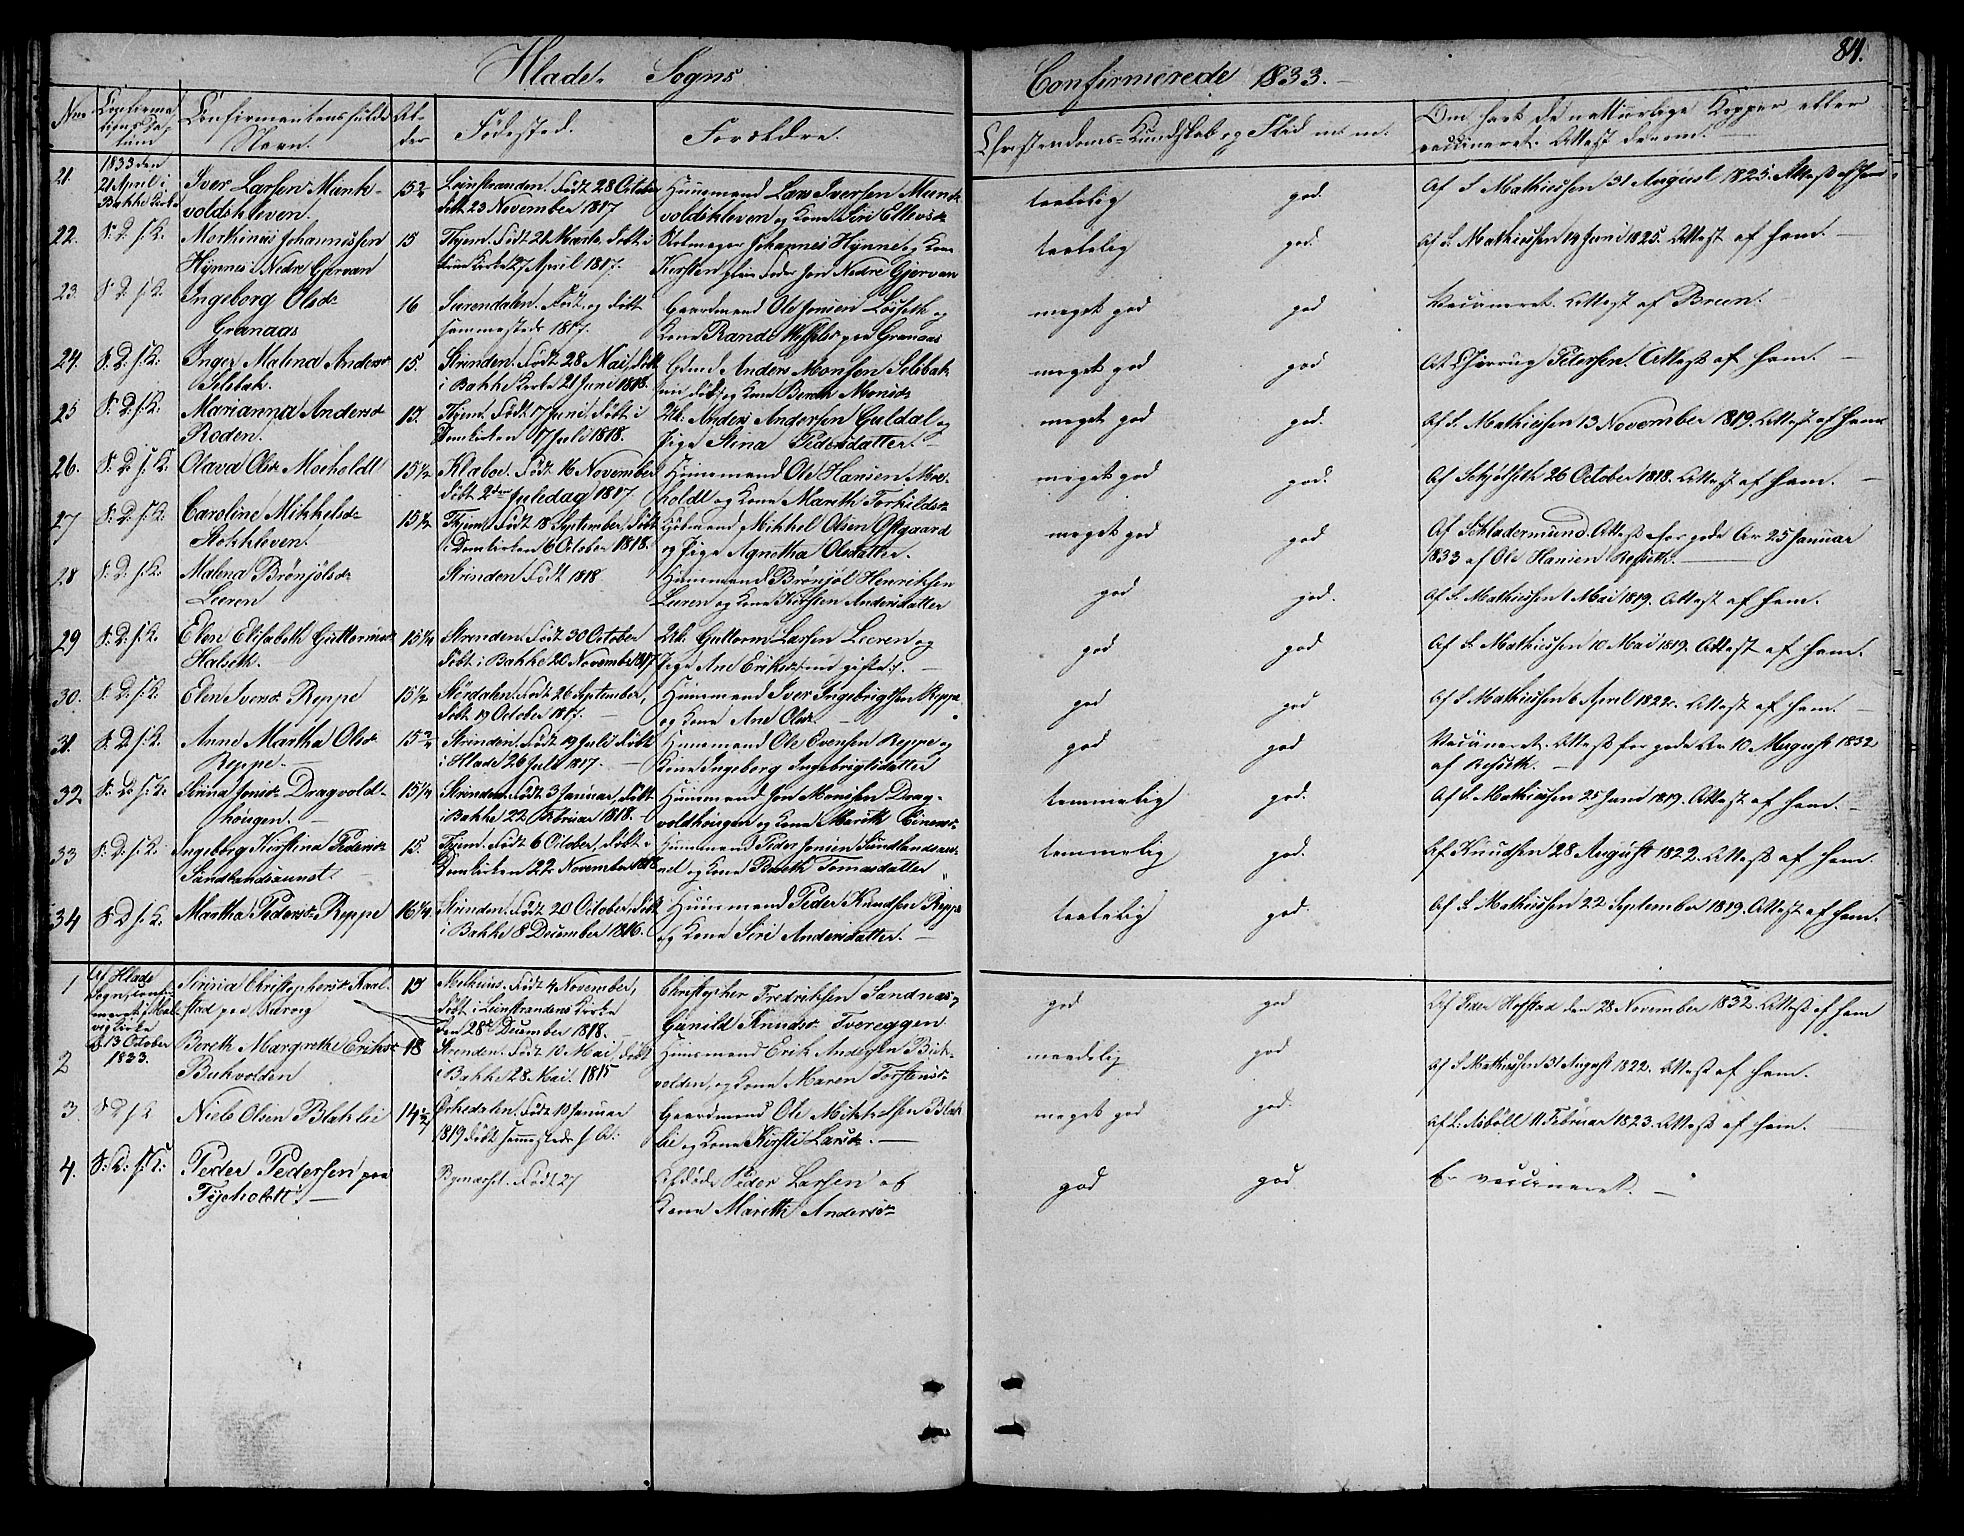 Hlade Sogns Confirmerede 1833. 84.
Nro Confirmationsdatum Confirmantens fulde Navn. Alder Fødested. Forældre. Christendoms-Kundskab og Flid m. m. Om havt de naturlige Kopper eller vaccineret. Attest derom.
21. 1833 den 21 April i Bakke Kirke Iver Larsen Munkvoldskleven. Leinstranden. Født 28 October døbt 23 November 1817 Huusmand Lars Iversen Munkvoldskleven og Kone Siri Ellevsdr taalelig god. Af S. Mathiessen 31 August 1825. Attest af ham
22. S. D. s. K. Morthinus Johannessen Hynne i Nedre Gjervan 15 Thjem. Født 21 Marts, døbt i 27 April 1817. Johannes Hynne og Kone Kirsten Foder Jon Nedre Gjervan taalelig god. Af S. Mathiessen 14 Juni 1825. Attest af ham.
23. S. D. s. K. Ingeborg Olsdr Granaas 16 Surendalen. Født og døbt sammesteds 1817. Gaardmand Ole Jonsen Løsseth og Kone Rande paa Granaas meget god god Vaccineret. Attest af Brun.
24. S. D. s. K. Inger Malena Andersdr Selsbak. 15. Strinden. Født 28 Mai, døbt i Bakke Kirke 21 Juni 1818. Gdmd Anders Monsen Selsbak og Kone Bereth Monsdr meget god god Af Chirurg Petersen. Attest af ham.
25 S. D. s. K. Marianna Andersdr Roden. 15. Thjem. Født 17 Juni, døbt i Domkirken 17 Juli 1818. Uk. Anders Andersen Guldal og Pige Stina Pedersdatter. meget god god. Af S. Mathiessen 13 November 1819. Attest af ham
26. S. D. s. K. Olava Olsdr Moeholdt 15 1/2 Klæboe. Født 16 November døbt 2den Juledag 1817. Huusmand Ole Hansen Moeholdt og Kone Mareth Torkildsdr meget god god. Af Schjølseth 26 October 1818. Attest af ham.
27 S. D. s. K. Caroline Mikkelsdr Stokkleven. 15 1/2 Thjem. Født 18 September, døbt i Domkirken 6 October 1818. Mikkel Olsen Østgaard og Pige Agnetha Olsdatter. meget god god Af Schladermund. Attest for gode Ar 25 Januar 1833 af Ole Hansen Refseth.
28 S. D. s. K. Malena Brønjølsdr Leeren Strinden Født 1818. Huusmand Brønjøl Henriksen Leeren og Kone Kirsten Andersdatter god god. Af S. Mathiessen 1 Mai 1819. Attest af ham.
29 S. D. s. K. Elen Elisabeth Guttormsdr Halseth. 15 1/4 Strinden. Født 30 October døbt i Bakke 20 November 1817 Uk. Guttorm Larsen Leeren og Pige Ane Eriksdr god god Af S. Mathiessen 10 Mai 1819. Attest af ham.
30. S. D. s. K. Elen Iversdr Reppe 15 1/2 Størdalen. Født 26 September, døbt 19 October 1817. Huusmand Iver Ingebrigtsen Reppe og Kone Ane Olsdr god god Af S. Mathiessen 6 April 1822. Attest af ham.
31. S. D. s. K. Anne Martha Olsdr Reppe. Strinden. Født 19 Juli, døbt i Hlade 26 Juli 1817. Huusmand Ole Evensen Reppe og Kone Ingeborg Ingebrigtsdatter god god Vaccineret. Attest for gode Ar 10 August 1832 af Refseth.
32 S. D. s. K. Sirina Jonsdr Dragvoldhougen. 15 1/4 Strinden. Født 3 Januar, døbt i Bakke 22 Februar 1818. Huusmand Jon Monsen Dragvoldhougen og Kone Mareth Einersdr temmelig god. Af S. Mathiessen 25 Juni 1819. Attest af ham.
33 S. D. s. K. Ingeborg Kirstina Pedersdr Sandlandsaunet 15. Thjem. Født 6 October, døbt i Domkirken 22 November 1818. Huusmand Peder Jonsen Sandlandsaunet og Kone Bereth Tomasdatter temmelig god. Af Knudsen 28 August 1822. Attest af ham.
34 S. D. s. K. Martha Pedersdr Reppe 16 1/4 Strinden. Født 20 October, døbt i Bakke 8 December 1816. Huusmand Peder Knudsen Reppe og Kone Siri Andersdatter. taalelig god. Af S. Mathiessen 22 September 1819. Attest af ham.
1 Af Hlade Sogn, confirmeret i Malvig Kirke d. 13 October 1833. Sirina Christophersdr Karlstad paa Ranvig 15 Melhuus. Født 4 November, døbt i Leinstrandens Kirke den 28de December 1818. Christopher Fredriksen Sandnas, Gunild Knudsdr Tvereggen god god Af Peder Hofstad den 28 November 1832. Attest af ham
2 Bereth Margrethe Eriksdr Bukvolden 18 Strinden. Født 10 Mai, døbt i Bakke 28 Mai 1815 Huusmand Erik Andersen Bukvolden, og Kone Maren Torstensdr maadelig god Af S. Mathiessen 31 August 1822. Attest af ham.
3. S. D. s. K. Niels Olsen Blaklie Ørkedalen. Født 10 Januar 1819 døbt sammesteds s. A. Gaardmand Ole Mikkelsen Blaklie og Kone Kirsti Larsdr. meget god god. Af L. Aibøll 11 Februar 1823. Attest af ham.
4. S. D. s. K. Peder Pedersen paa Tycholdt. Bynæsset. Født 27 Afdøde Peder Larsen og Kone Mareth Andersdr god god. Er vaccineret.